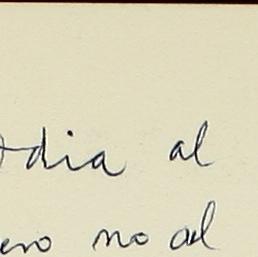 dia al
ero no al